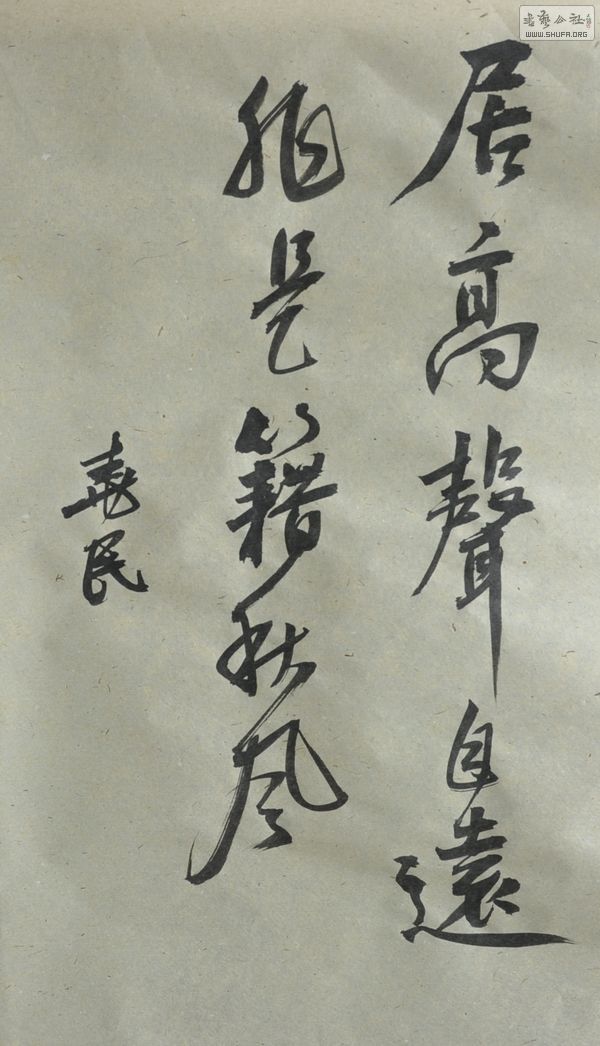 居高聲自遠
非是籍秋風
堯民
書藝公社
WWW.SHUFA.ORG